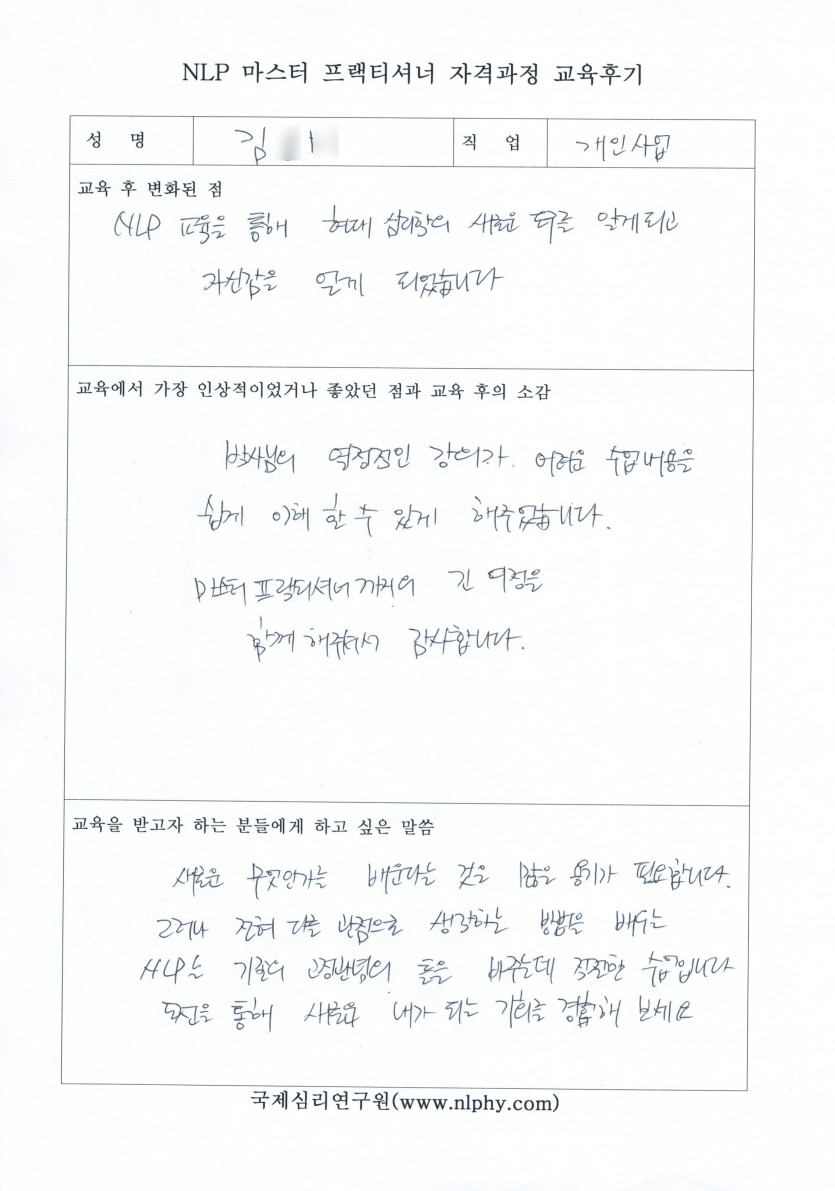 NLP 마스터 프랙티셔너 자격과정 교육후기
성 명 김 직 업 개인사업
교육 후 변화된 점
NLP 교육을 통해 현대 심리학의 새로운 알게되고
자신감을 얻게 되었습니다
교육에서 가장 인상적이었거나 좋았던 점과 교육 후의 소감
박사님의 열정적인 강의가. 어려운 수업내용을
쉽게 이해 할 수 있게 해주었습니다.
마스터 프랙티셔너 까지의 긴 여정을
함께 해줘서 감사합니다.
교육을 받고자 하는 분들에게 하고 싶은 말씀
새로운 무엇인가를 배운다는 것은 많은 용기가 필요합니다.
그러나 전혀 다른 관점으로 생각하는 방법을 배우는
NLP는 기존의 고정관념의 틀을 바꾸는데 적절한 수업입니다
도전을 통해 새로운 내가 되는 기회를 경험해 보세요
국제심리연구원(www.nlphy.com)